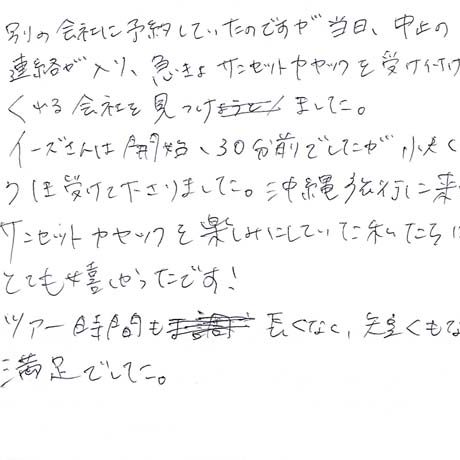 別の会社に予約していたのですが当日、中止の
連絡が入り、急きょサンセットカヤックを受け付け
くれる会社を見つけました。
イーズさんは開始、30分前でしたが 快く
クは受けて下さりました。沖縄旅行に来
サンセットカヤックを楽しみにしていた私たちに
とても嬉しかったです!
ツアー時間も 長くなく、短くもな
満足でした。